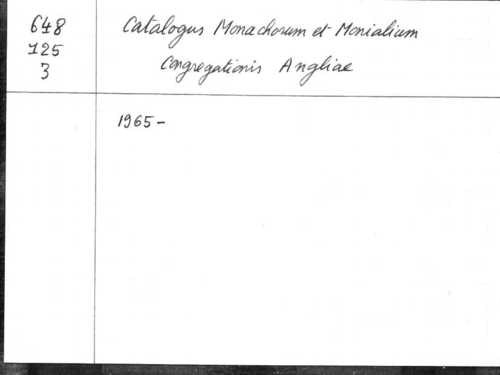 648 Catalogus Monachorum et Monialium
125 Congregationis Angliae
3
1965-